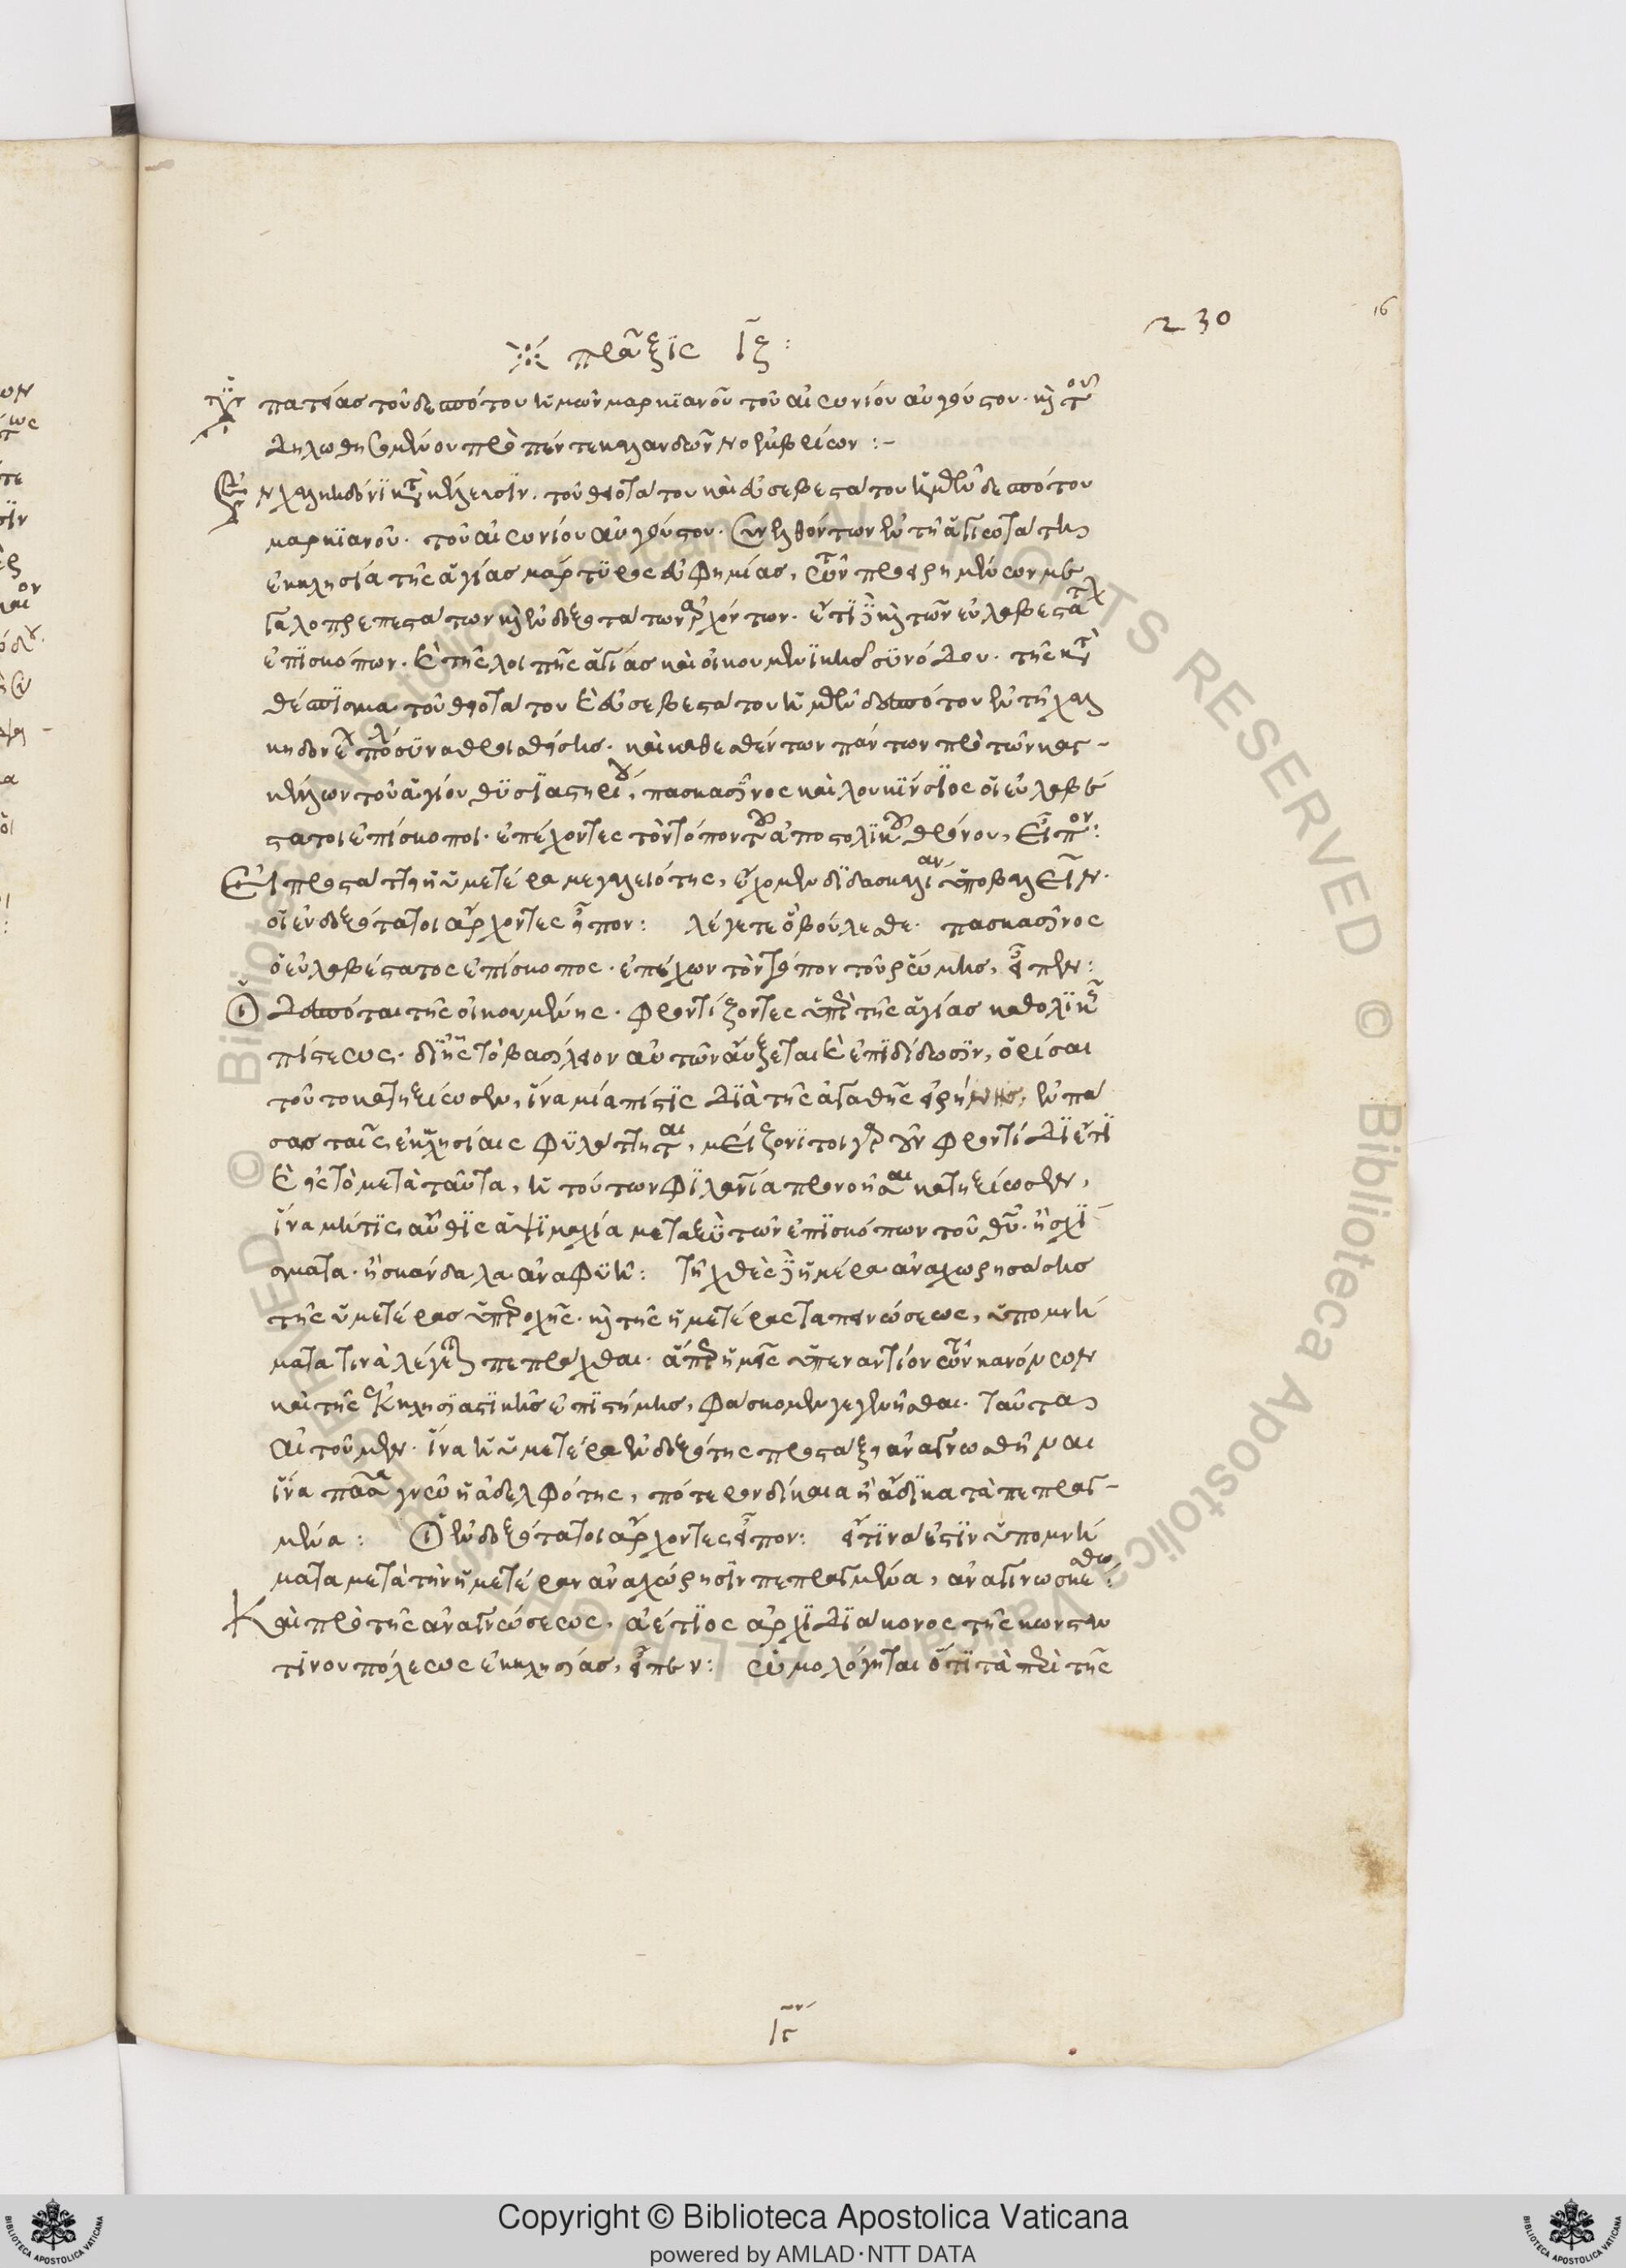 230
16
πρᾶξϊς ιϛ:
ὑπατείας τοῦ δεσπότου ἡμῶν μαρκϊανοῦ τοῦ αἰωνίου αὐγούστου. καὶ τοῦ
δηλωθησομένου πρὸ πέντε καλανδῶν νοεμβρίων:-
Ἐν χαλκηδόνϊ κατὰ κέλευσϊν. τοῦ θειοτάτου καὶ εὐσεβεστάτου ἡμῶν δεσπότου
μαρκϊανοῦ. τοῦ αἰωνίου αὐγούστου. συνελθόντων ἐν τῆ ἁγιωτάτη
ἐκκλησία τῆς ἁγίας μάρτϋρος εὐφημίας, τῶν προειρημένων με
γαλοπρεπεστάτων καὶ ἐνδοξοτάτων ἀρχόντων. ἔτϊ δὲ καὶ τῶν εὐλαβεστάτων
ἐπϊσκόπων. καὶ τῆς λοιπῆς ἁγίας καὶ οἰκουμενϊκῆς συνόδου. τῆς κατὰ
θέσπϊσμα τοῦ θειοτάτου καὶ εὐσεβεστάτου ἡμῶν δεσπότου ἐν τῆ χαλ
κηδονέων πόλει συναθροισθείσης. καὶ καθεσθέντων πάντων πρὸ τῶν καγ-
κέλλων τοῦ ἁγίου θϋσϊαστηρίου, πασκασῖνος καὶ λουκϊνσϊος οἱ εὐλαβέ
στατοι ἐπίσκοποι. ἐπέχοντες τὸν τόπον τοῦ ἀποστολϊκοῦ θρόνου, εἶπον:
Εἰ προστάττει ἡ ὑμετέρα μεγαλειότης, ἔχομεν δϊδασκαλίαν ὑποβαλεῖν.
οἱ ἐνδοξότατοι ἄρχοντες εἶπον: λέγετε ὃ βούλεσθε. πασκασῖνος
ὁ εὐλαβέστατος ἐπίσκοπος. ἐπέχων τὸν τόπον τοῦ ῥώμης, εἶπεν:
Οἱ δεσπόται τῆς οἰκουμένης. φροντίζοντες ὑπὲρ τῆς ἁγίας καθολϊκῆς
πίστεως. δϊ' ἧς τὸ βασίλειον αὐτῶν αὔξεται καὶ ἐπϊδίδωσϊν, ὁρίσαι
τοῦτο κατηξίωσεν, ἵνα μία πίστϊς δϊὰ τῆς ἀγαθῆς εἰρήνης, ἐν πά
σαις ταῖς ἐκκλησίαις φϋλάττηται, μείζονϊ τοιγαροῦν φροντίδϊ ἔτϊ
καὶ εἰς τὸ μετὰ ταῦτα, ἡ τούτων φϊλανθρωπία προνοῆσαι κατηξίωσεν,
ἵνα μήτϊς αὖθϊς ἁψϊμαχία μεταξὺ τῶν ἐπϊσκόπων τοῦ θυ. ἢ σχί
σματα. ἢ σκάνδαλα ἀναφϋῆ: τῆ χθὲς δὲ ἡμέρα ἀναχωρησάσης
τῆς ὑμετέρας ὑπεροχῆς. καὶ τῆς ἡμετέρας ταπεινώσεως, ὑπομνή
ματα τινὰ λέγεται πεπρᾶχθαι. ἅπερ ἡμεῖς ὑπεναντίον τῶν κανόνων
καὶ τῆς ἐκκλησϊαστϊκῆς ἐπϊστήμης, φάσκομεν γεγενῆσθαι. ταῦτα
αἰτοῦμεν. ἵνα ἡ ὑμετέρα ἐνδοξότης προστάξη, ἀναγνωσθῆναι
ἵνα πᾶσα γνῶ ἡ ἀδελφότης, πότερον δίκαια ἢ ἄδϊκα τὰ πεπραγ-
μένα: Οἱ ἐνδοξότατοι ἄρχοντες εἶπον: εἴ τϊνα ἐστὶν ὑπομνή
ματα μετὰ τὴν ἡμετέραν ἀναχώρησϊν πεπραγμένα, ἀναγινωσκέσθω:
Καὶ πρὸ τῆς ἀναγνώσεως, ἀέτϊος ἀρχϊδϊάκονος τῆς κωνσταν
τίνου πόλεως ἐκκλησίας, εἶπεν: ὡμολόγηται ὅτϊ τὰ περὶ τῆς
ιϛ